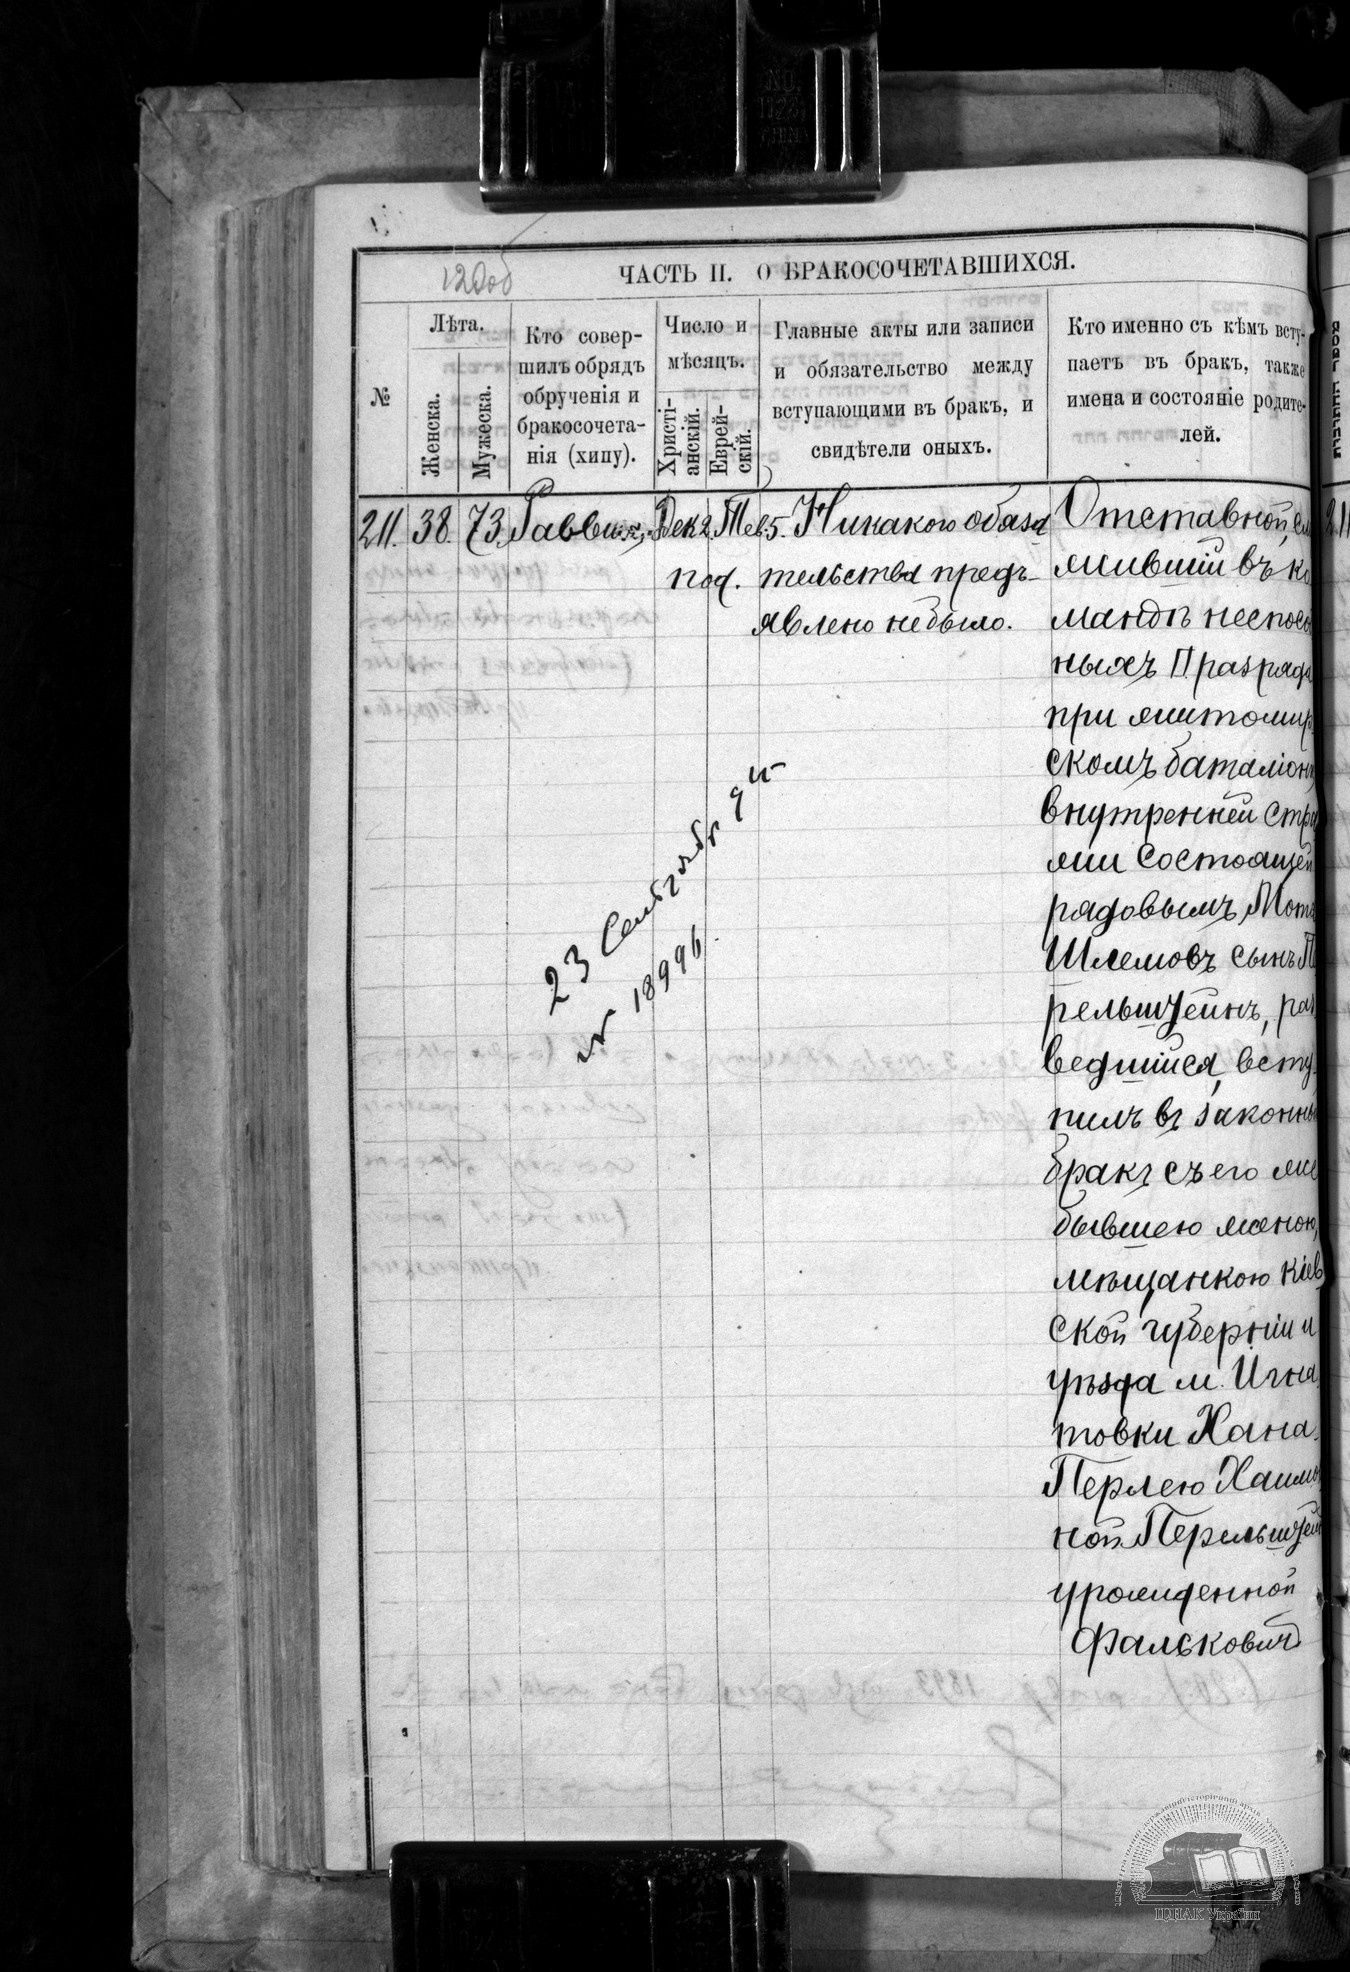 120об
ЧАСТЬ II. О БРАКОСОЧЕТАВШИХСЯ.
№
Лѣта.
Женска.
Мужеска.
Кто совер-
шилъ обрядъ
обрученія и
бракосочета-
нія (хипу).
Число и
мѣсяцъ.
Христі-
анскій.
Еврей-
скій.
Главные акты или записи
и обязательство между
вступающими въ бракъ, и
свидѣтели оныхъ.
Кто именно съ кѣмъ всту-
паетъ въ бракъ, также
имена и состояніе родите-
лей.
211. 38. 73. Раввин Дек 2. Тев. 5.
под.
Никакого обяза
тельства предъ-
явлено небыло.
Отставной, слу
жившій въ ко
мандѣ неспосо
ныхъ II разряда
при житомир
скомъ баталіонѣ
внутренней стра
жи состоящей
рядовымъ, Мот
Шлемовъ сынъ П
рельштейнъ, раз
ведшійся, всту
пилъ въ законны
бракъ съ его же
бывшею женою,
мѣщанкою Кіев
ской губерніи и
уѣзда м. Игна
товки Хана-
Перлею Хаимо
ной Перельштей
урожденной
Фальковичъ
23 Сентября 94
№ 18996.
211
ЦДІАК України